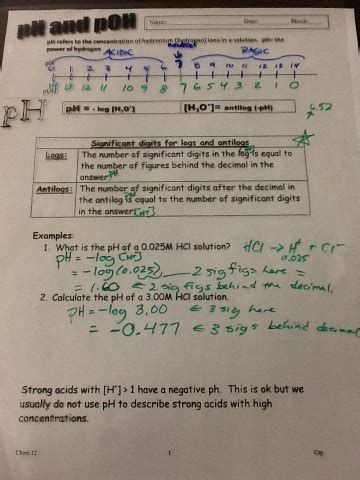 pH and pOH
Name: Date: Block:
pH refers to the concentration of hydronium (hydrogen) ions in a solution. pH= the
power of hydrogen
ACIDIC neutral BASIC
pH
0 1 2 3 4 5 6 7 8 9 10 11 12 13 14
pOH 14 13 12 11 10 9 8 7 6 5 4 3 2 1 0
pH
pH = - log [H₃O⁺]
[H₃O⁺]= antilog (-pH)
6.52
Significant digits for logs and antilogs
Logs: The number of significant digits in the log is equal to
the number of figures behind the decimal in the
answer. pH
Antilogs: The number of significant digits after the decimal in
pH
the antilog is equal to the number of significant digits
in the answer. [H⁺]
Examples:
1. What is the pH of a 0.025M HCl solution? HCl → H⁺ + Cl⁻
0.025
pH = -log [H⁺]
= -log(0.025) 2 sig figs here =
= 1.60 ← 2 sig figs behind the decimal.
2. Calculate the pH of a 3.00M HCl solution.
pH = -log 3.00 ← 3 sig here
= -0.477 ← 3 sigs behind decimal
Strong acids with [H⁺] > 1 have a negative ph. This is ok but we
usually do not use pH to describe strong acids with high
concentrations.
Chem 12 1